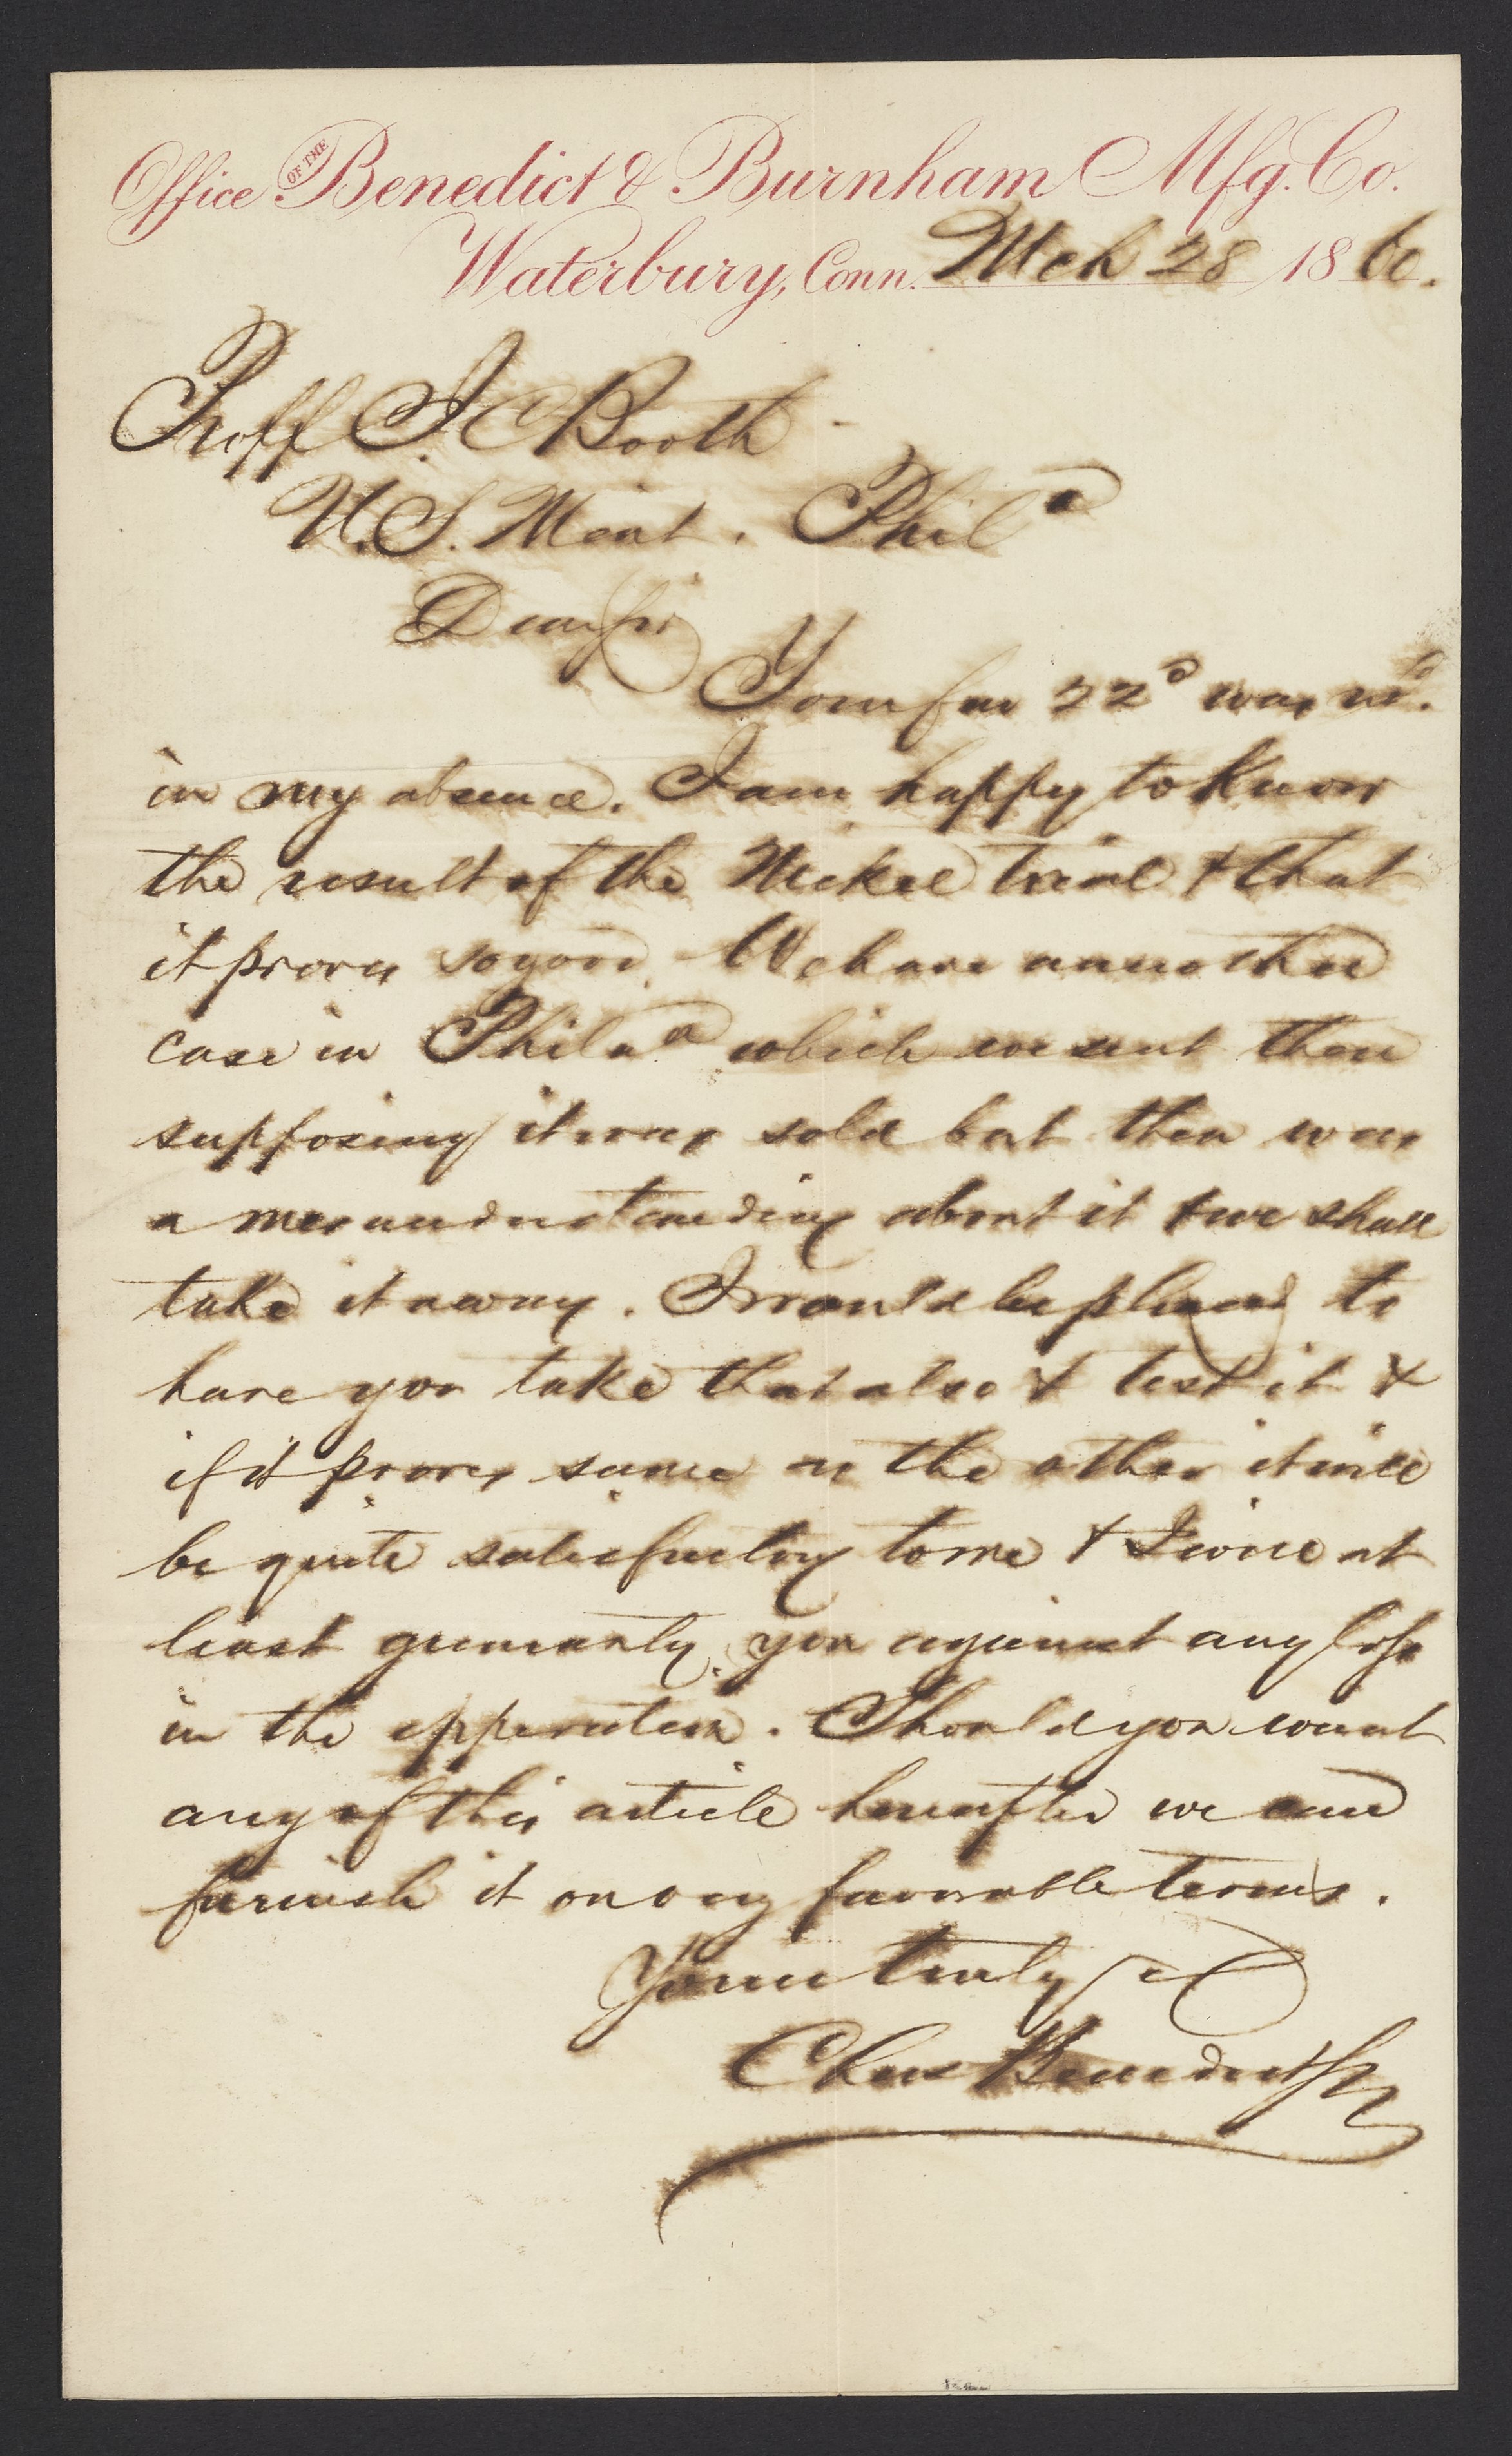 Office OF THE Benedict & Burnham Mfg. Co.
Waterbury, Conn. Mch 28 1860.
Proff J. C Booth
U.S. Mint. Phila
Dear Sir
Your fav 22d was recd.
in my absence. I am happy to know
the result of the Nickel trial & that
it proves so good. We have annother
case in Philaa which we sent there
supposing it was sold but there was
a misunderstanding about it & we shall
take it away. I would be pleased to
have you take that also & test it &
if it proves same as the other it will
be quite satisfactory to me & I will at
least guaranty you against any loss
in the opperation. Should you want
any of this article hereafter we can
furnish it on very favorable terms.
Yours truly
Chas Benedict